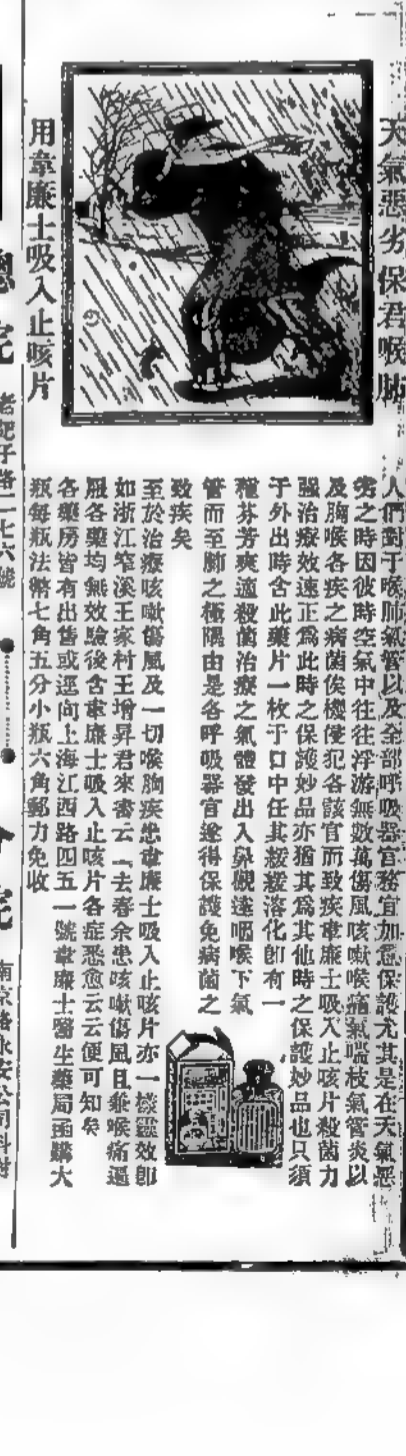 天氣惡劣保君喉肺
用韋廉士吸入止咳片
人們對于喉肺氣管以及全部呼吸器官務宜加意保護尤其是在天氣惡
劣之時因彼時空氣中往往浮游無數萬傷風咳嗽喉痛氣喘枝氣管炎以
及胸喉各疾之病菌俟機侵犯各該官而致疾韋廉士吸入止咳片殺菌力
强治療效速正爲此時之保護妙品亦猶其爲其他時之保護妙品也只須
于外出時含此藥片一枚于口中任其緩緩溶化卽有一
種芬芳爽適殺菌治療之氣體發出入鼻觀達咽喉下氣
管而至肺之極隅由是各呼吸器官遂得保護免病菌之
致疾矣
至於治療咳嗽傷風及一切喉胸疾患韋廉士吸入止咳片亦一樣靈效卽
如浙江窄溪王家村王增昇君來書云「去春余患咳嗽傷風且兼喉痛遍
服各藥均無效驗後含韋廉士吸入止咳片各症悉愈云云便可知矣
各藥房皆有出售或逕向上海江西路四五一號韋廉士醫生藥局函購大
瓶每瓶法幣七角五分小瓶六角郵力免收
總院
老靶子路二七六號
分院
南京路永安公司斜對